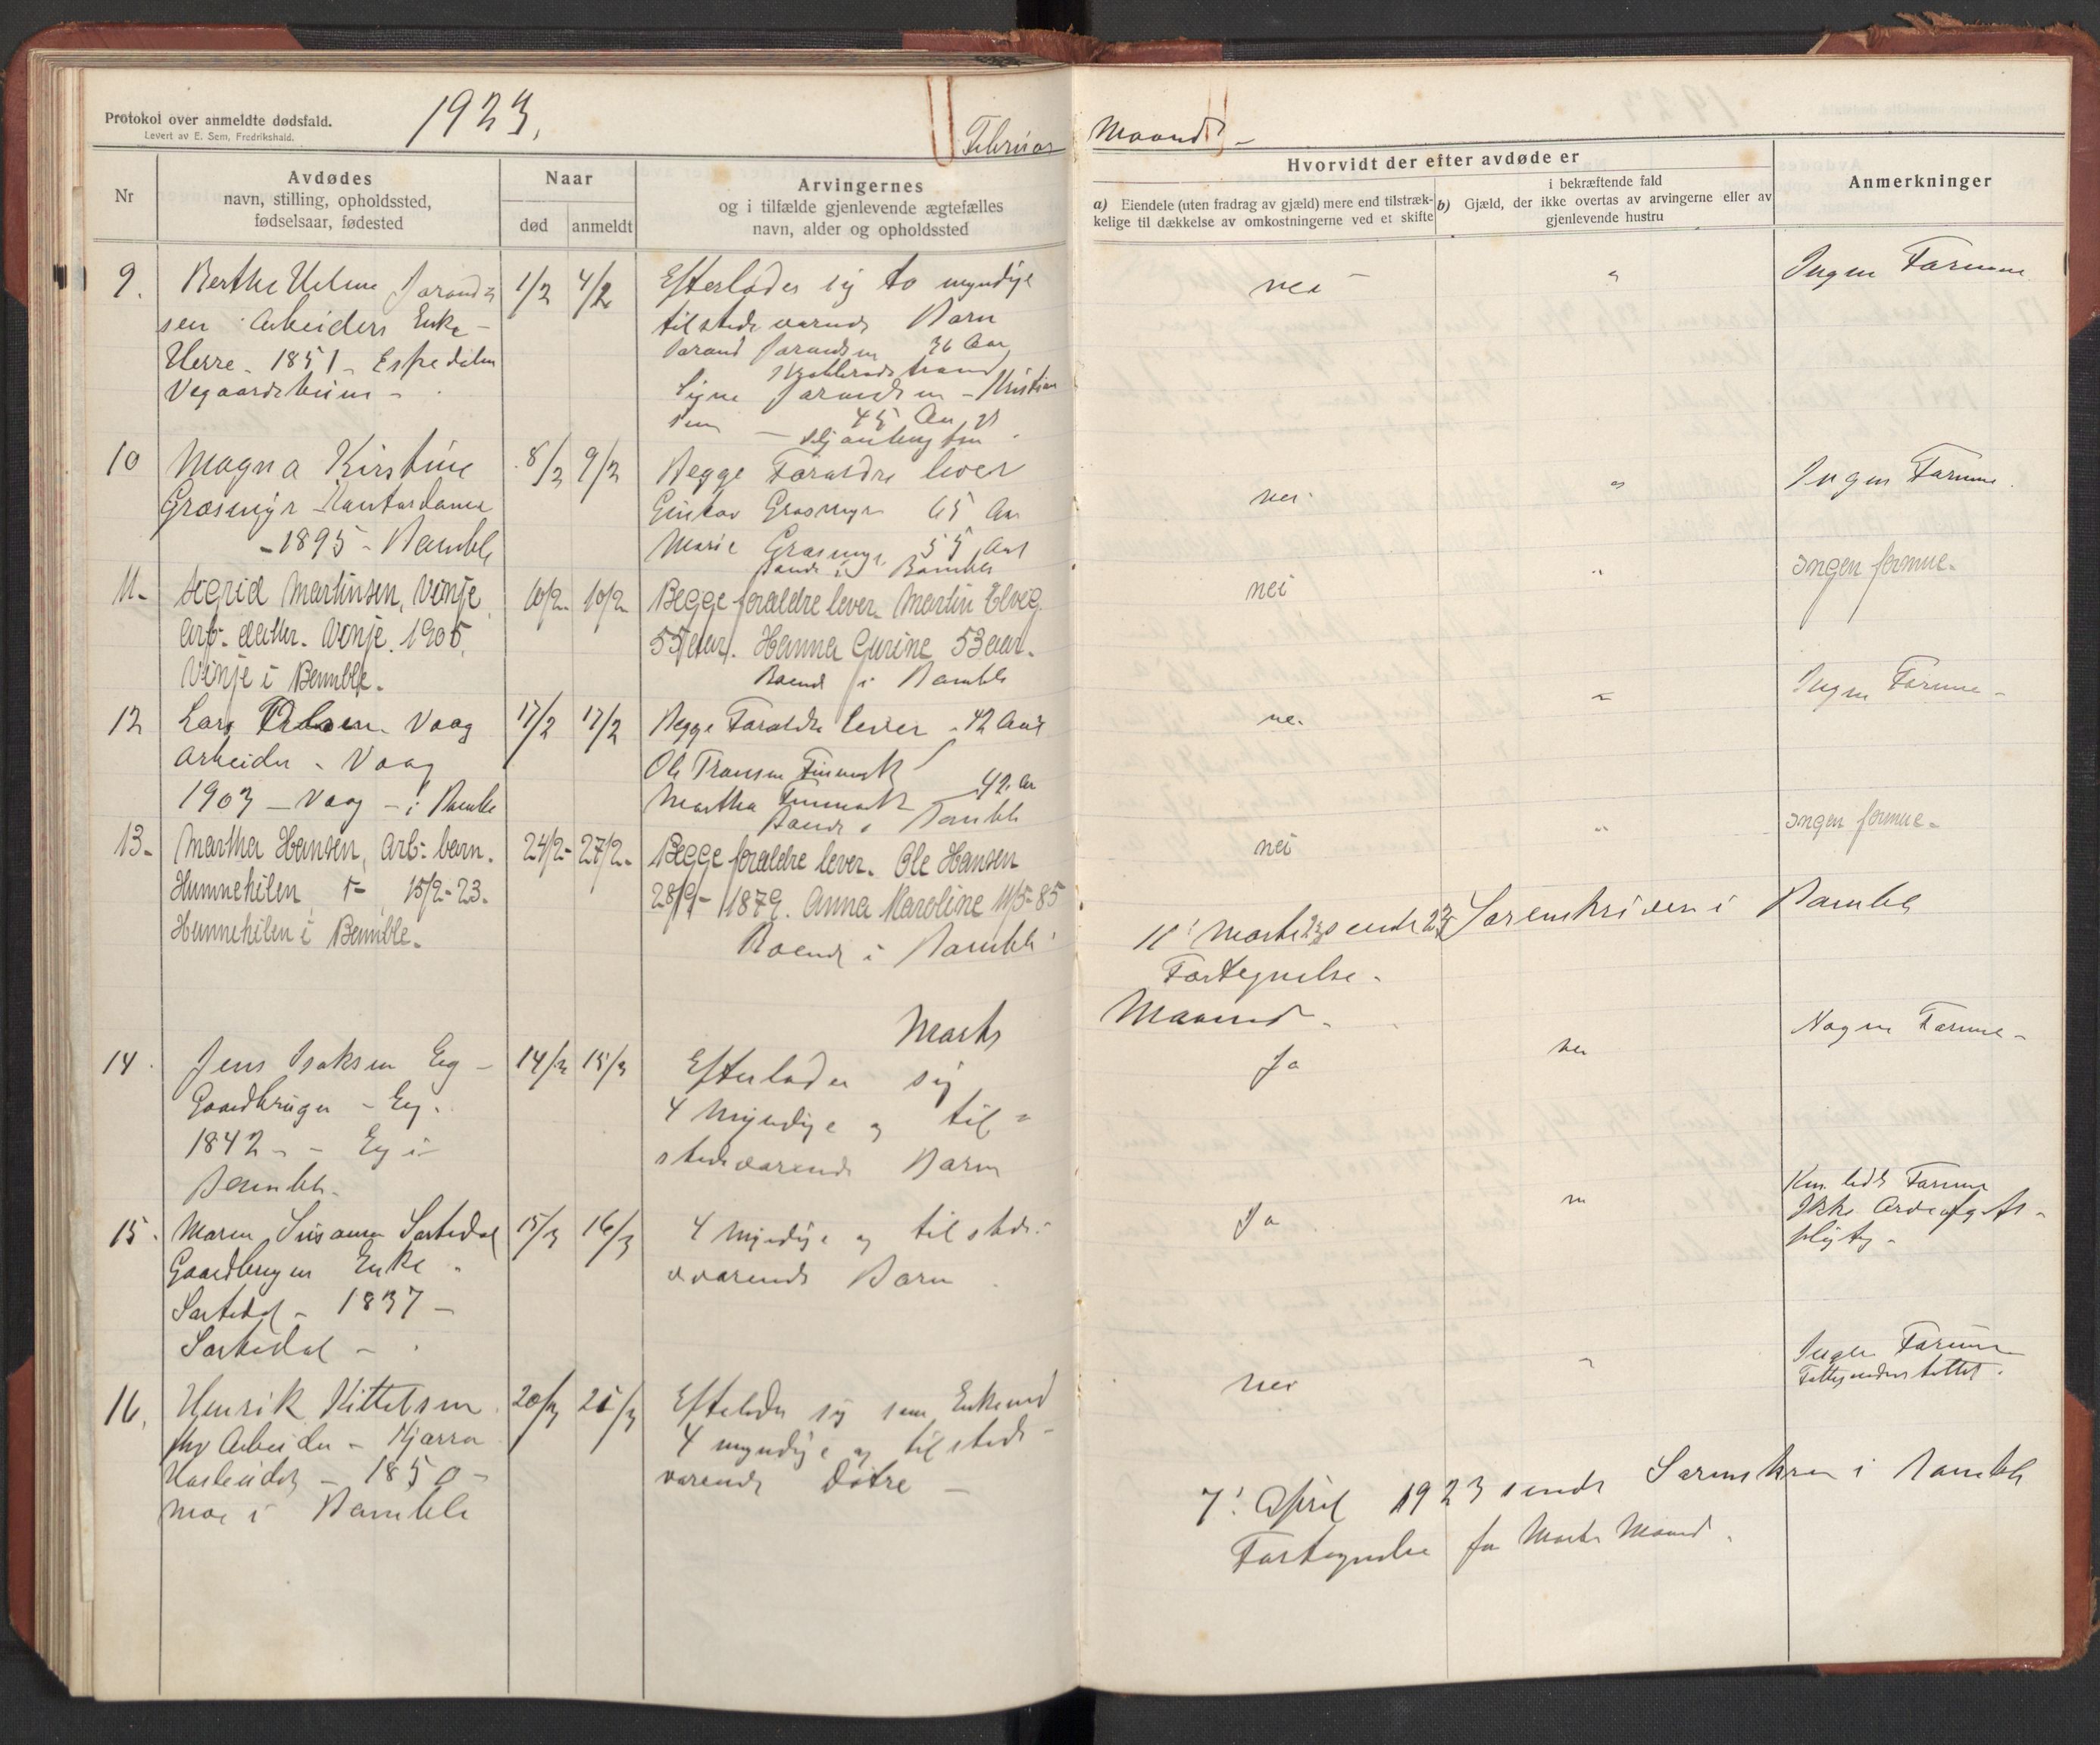 Protokol over anmeldte dødsfald.
Levert av E. Sem, Fredrikshald.
1923.
Februar Maaned -
Nr
Avdødes
navn, stilling, opholdssted,
fødselsaar, fødested
Naar
død
anmeldt
Arvingernes
og i tilfælde gjenlevende ægtefælles
navn, alder og opholdssted
Hvorvidt der efter avdøde er
a) Eiendele (uten fradrag av gjæld) mere end tilstræk-
kelige til dækkelse av omkostningerne ved et skifte
i bekræftende fald
b) Gjæld, der ikke overtas av arvingerne eller av
gjenlevende hustru
Anmerkninger
9. Berthe Helene
sen Arbeiders Enke -
Herre - 1851 - Espedalen
Vegaardsheien -
1/2 4/2
Efterlader sig to myndige
tilstedeværende Børn
36 Aar
Signe - Kristian
sen - 45 Aar
nei
"
Ingen Formue
10 Magna Kirstine
Græsmyr Kontordame
- 1895 - Bamble
8/2 9/2
Begge Forældre lever
Gustav Græsmyr 65 Aar
Marie Græsmyr 55 Aar
Boende i Bamble
nei
"
Ingen Formue.
11. Sigrid Martinsen, Vinje
Arb. datter. Vinje. 1905.
Vinje i Bamble.
10/2. 10/2
Begge forældre lever. Martin Elveg.
55 aar. Hanna Gurine 53 aar.
Boende i Bamble
nei
"
Ingen formue.
12 Lars Olsen Vaag
Arbeider - Vaag
1903 - Vaag - i Bamble
17/2 17/2
Begge Forældre lever - 42 Aar
Ole Finmark
Martha Finmark - 42 Aar
Boende i Bamble
nei
"
Ingen Formue -
13. Martha Hansen, Arb. barn.
Hummekilen, 15/2-23.
Hummekilen i Bamble.
24/2- 27/2.
Begge forældre lever. Ole Hansen
28/9 - 1879. Anna Karoline 11/5-85
Boende i Bamble
nei
"
Ingen formue.
Marts 23 sendt Sorenskriveren i Bamble
Fortegnelse.
Marts Maaned -
14. Jens Isaksen Eeg -
Gaardbruger - Eeg.
1842 - - Eeg i
Bamble.
14/3 15/3
Efterlader sig
4 Myndige og til=
stedeværende Børn
Ja
nei
Nogen Formue -
15. Maren Susanne Sortedal
Gaardbrugers Enke
Sortedal - 1837 -
Sortedal -
15/3 16/3
4 Myndige og tilstede-
værende Børn
Ja
Kun lidt Formue
Ikke Arveafgifts-
pligtig.
16. Henrik Kittelsen
fhv Arbeider - Kjærra
- 1850 -
Moe i Bamble
20/3 21/3
Efterlader sig som Enkemand
4 myndige og tilstede-
værende Døtre -
nei
"
Ingen Formue
Fattigunderstøttet.
7' April 1923 sendt Sorenskriv i Bamble
Fortegnelse for Marts Maaned.